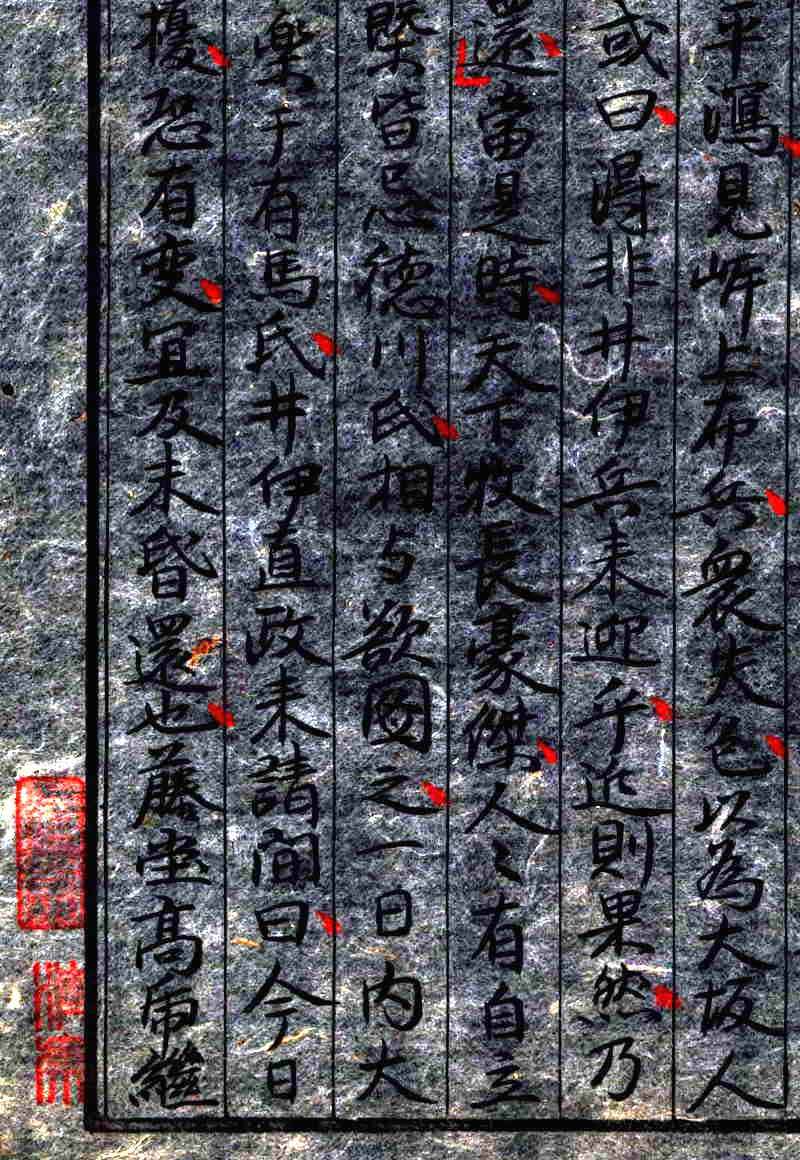 平瀉見岸上布兵衆失色以為大坂人
或曰得非井伊兵来迎乎近則果然乃
還當是時天下牧長豪傑人々有自立
槩皆忌德川氏相与欲圖之一日内大
樂于有馬氏井伊直政来請間曰今日
擾恐有变宜及未昏還也藤堂高虎繼